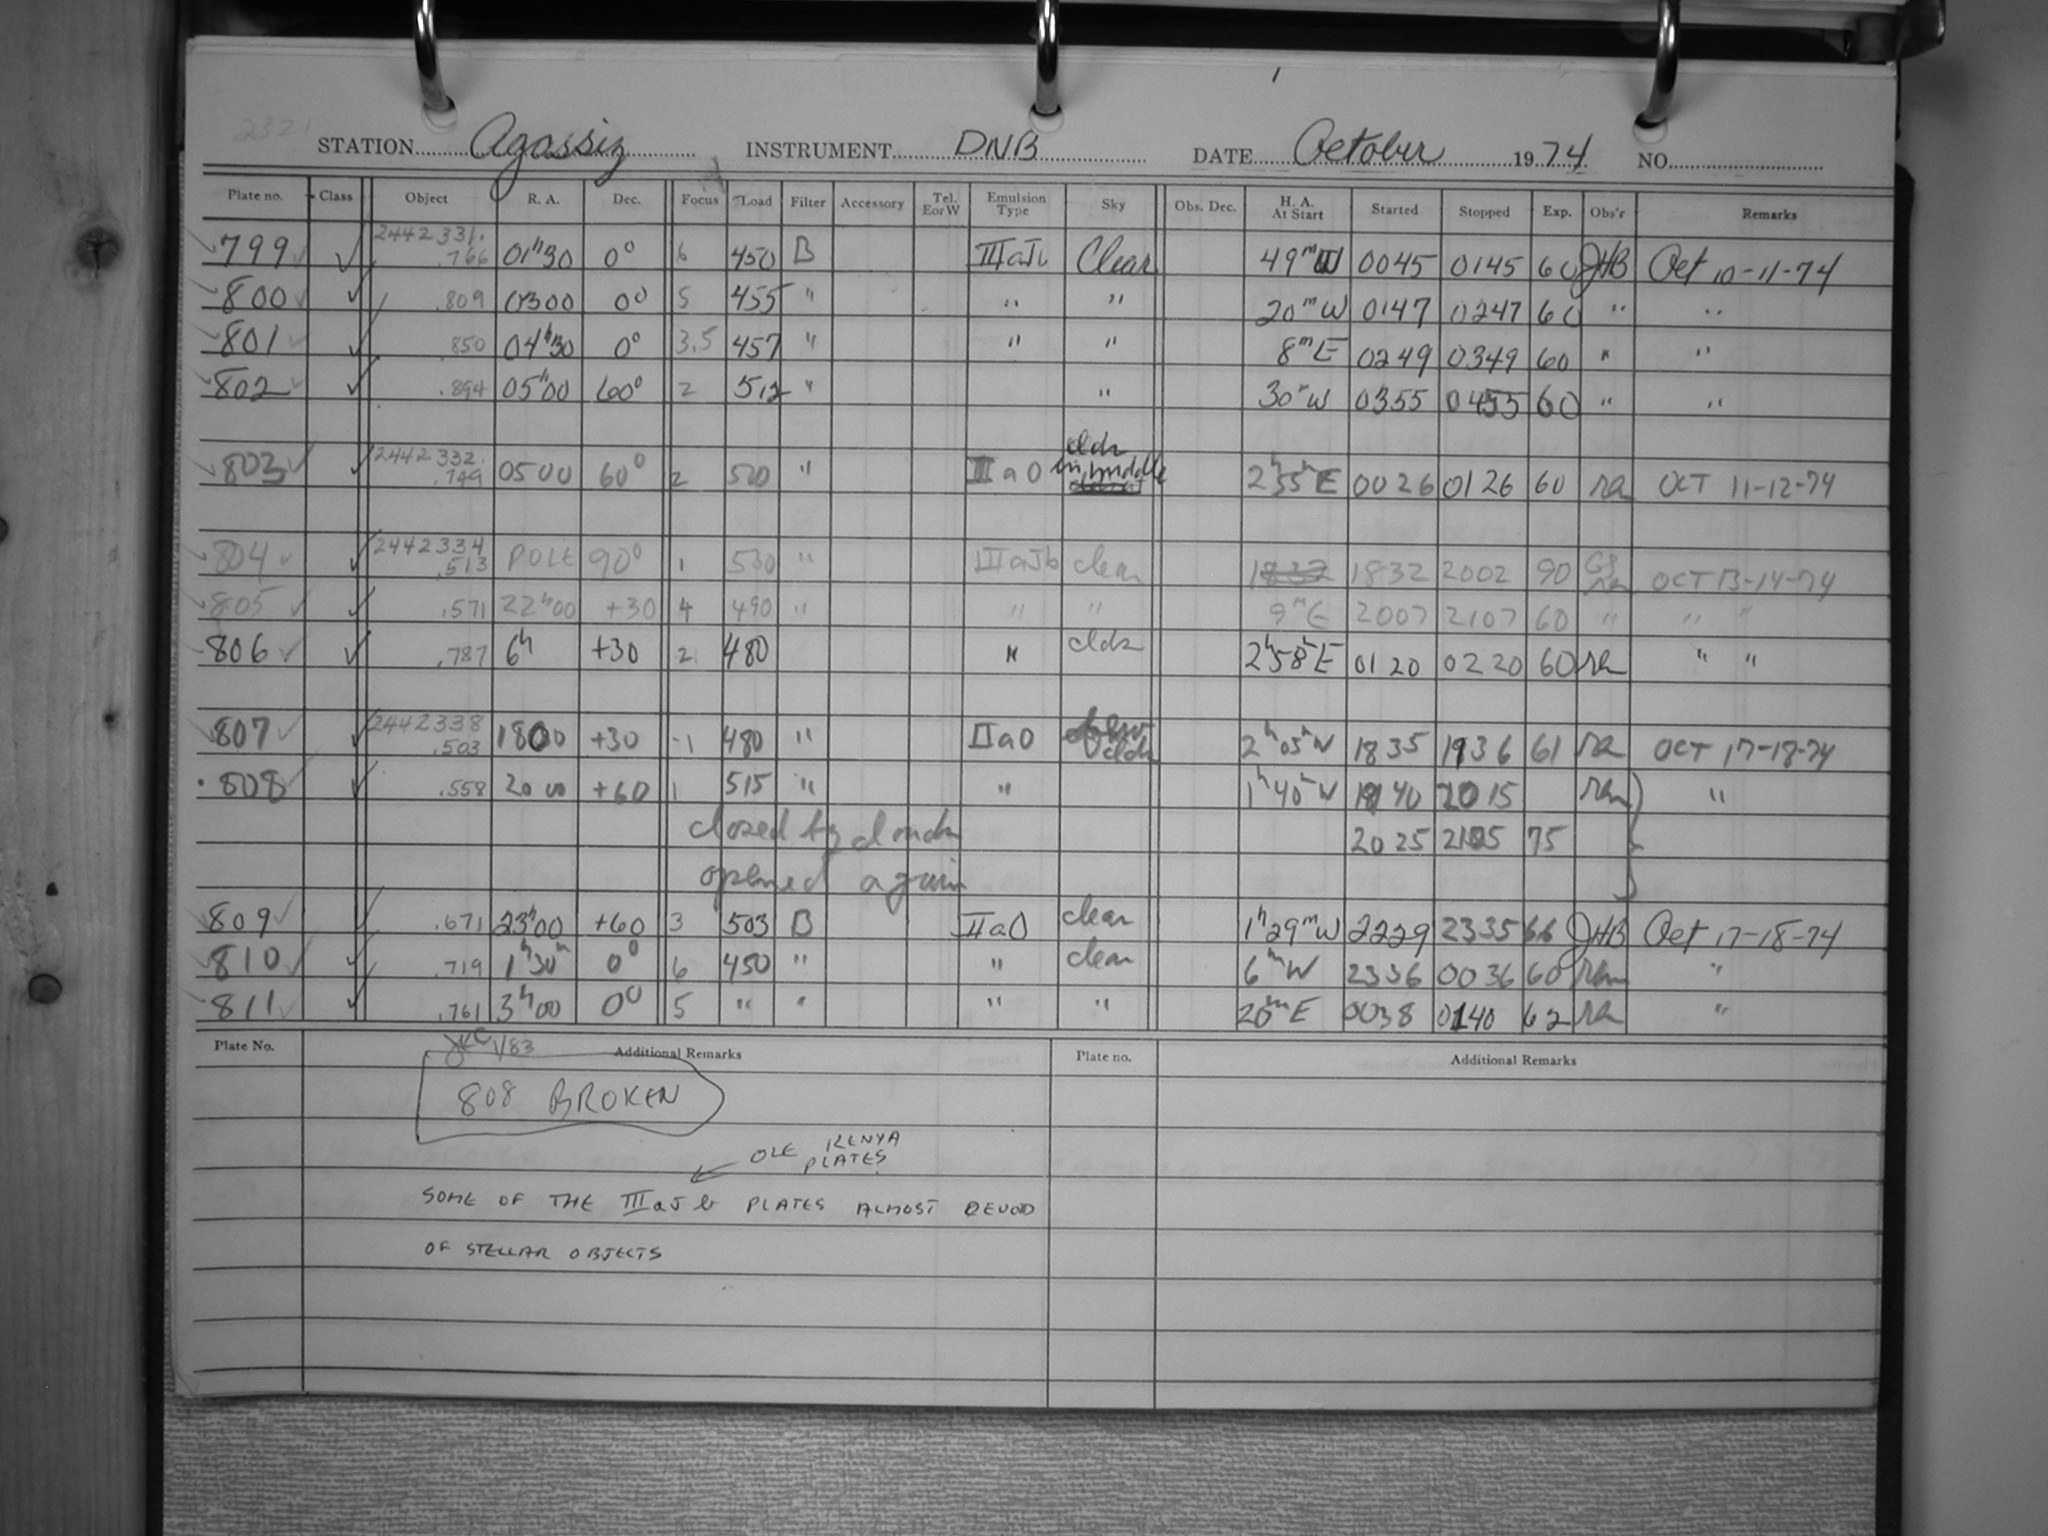 STATION Agassiz INSTRUMENT DNB DATE October 1974 NO.
Plate no. Class Object R. A. Dec. Focus Load Filter Accessory Tel. E or W Emulsion Type Sky Obs. Dec. H. A. At Start Started Stopped Exp. Obs'r Remarks
799 ✓ 2442331.766 01h30 0° 6 450 B IIIaJb Clear 49m W 0045 0145 60 JHB Oct 10-11-74
800 ✓ .809 0300 0° 5 455 " " " 20m W 0147 0247 60 " "
801 ✓ .850 04h30 0° 3.5 457 " " " 8m E 0249 0349 60 " "
802 ✓ .894 05h00 60° 2 512 " " 30m W 0355 0455 60 " "
803 ✓ 2442332.749 0500 60° 2 520 " IIaO clds in middle 2h55m E 0026 0126 60 ra OCT 11-12-74
804 ✓ 2442334.513 POLE 90° 1 530 " IIIaJb clear 1832 2002 90 OCT 13-14-74
805 ✓ .571 22h00 +30 4 490 " " " 9m E 2007 2107 60 " " "
806 ✓ .787 6h +30 2 480 " clds 2h58m E 0120 0220 60 ra " "
807 ✓ 2442338.503 1800 +30 -1 480 " IIaO clds 2h05m W 1835 1936 61 ra OCT 17-18-74
808 ✓ .558 2000 +60 1 515 " " 1h40m W 1940 2015 ram "
closed by clouds 2025 2105 75
opened again
809 ✓ .671 23h00 +60 3 503 B IIaO clear 1h29m W 2229 2335 66 JHB Oct 17-18-74
810 ✓ .719 1h30m 0° 6 450 " " clear 6m W 2336 0036 60 ram "
811 ✓ .761 3h00 0° 5 " " " " 26m E 0038 0140 62 ra "
Plate No. Additional Remarks Plate no. Additional Remarks
1/83
808 BROKEN
OLE KENYA
PLATES
SOME OF THE IIIaJb PLATES ALMOST DEVOID
OF STELLAR OBJECTS